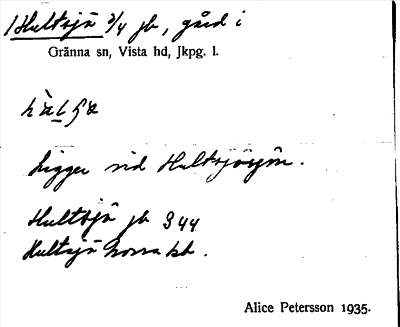 1 Hultsjö 3/4 jb, gård i
Gränna sn, Vista hd, Jkpg. l.
Ligger vid Hultsjösjön.
Hultsjö jb 344
Hultsjö Norra kb.
Alice Petersson 1935.